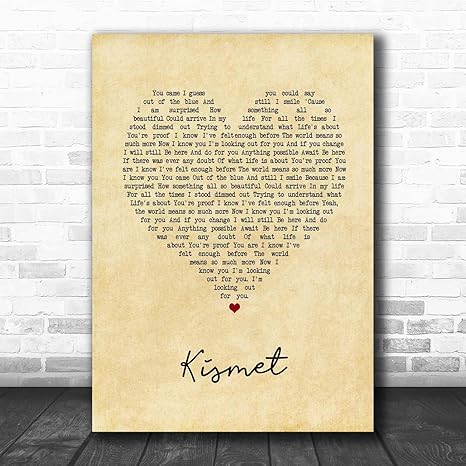 You came I guess you could say
out of the blue And still I smile 'Cause
I am surprised How something all so
beautiful Could arrive In my life For all the times I
stood dimmed out Trying to understand what Life's about
You're proof I know I've feltenough before The world means so
much more Now I know you I'm looking out for you And if you change
I will still Be here And do for you Anything possible Await Be here If
there was ever any doubt Of what life is about You're proof You
are I know I've felt enough before The world means so much more Now
I know you You came Out of the blue And still I smile Because I am
surprised How something all so beautiful Could arrive In my life
For all the times I stood dimmed out Trying to understand what
Life's about You're proof I know I've felt enough before Yeah,
the world means so much more Now I know you I'm looking out
for you And if you change I will still Be here And do
for you Anything possible Await Be here If there
was ever any doubt Of what life is
about You're proof You are I know I've
felt enough before The world
means so much more Now I
know you I'm looking
out for you. I'm
looking out
for you.
Kismet